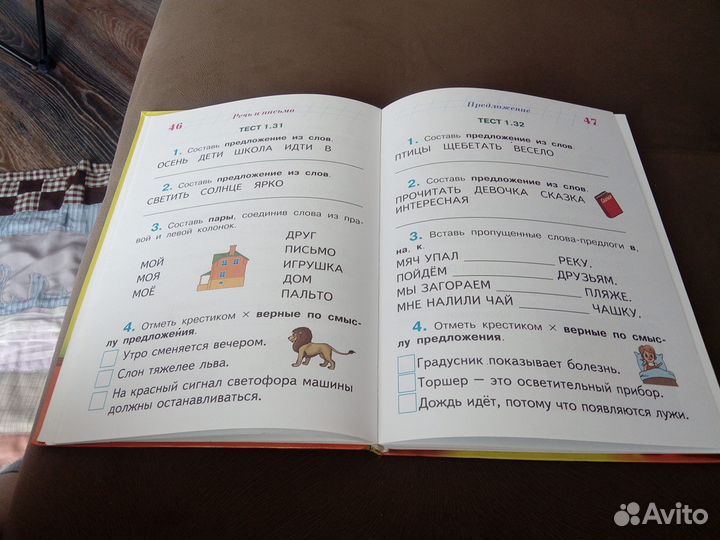 46 Речь и письмо
ТЕСТ 1.31
1. Составь предложение из слов.
ОСЕНЬ ДЕТИ ШКОЛА ИДТИ В
2. Составь предложение из слов.
СВЕТИТЬ СОЛНЦЕ ЯРКО
3. Составь пары, соединив слова из пра-
вой и левой колонок.
ДРУГ
ПИСЬМО
МОЙ ИГРУШКА
МОЯ ДОМ
МОЁ ПАЛЬТО
4. Отметь крестиком × верные по смыс-
лу предложения.
Утро сменяется вечером.
Слон тяжелее льва.
На красный сигнал светофора машины
должны останавливаться.
Предложение 47
ТЕСТ 1.32
1. Составь предложение из слов.
ПТИЦЫ ЩЕБЕТАТЬ ВЕСЕЛО
2. Составь предложение из слов.
ПРОЧИТАТЬ ДЕВОЧКА СКАЗКА
ИНТЕРЕСНАЯ
3. Вставь пропущенные слова-предлоги в,
на, к.
МЯЧ УПАЛ ____________ РЕКУ.
ПОЙДЁМ ____________ ДРУЗЬЯМ.
МЫ ЗАГОРАЕМ ____________ ПЛЯЖЕ.
МНЕ НАЛИЛИ ЧАЙ ____________ ЧАШКУ.
4. Отметь крестиком × верные по смыс-
лу предложения.
Градусник показывает болезнь.
Торшер — это осветительный прибор.
Дождь идёт, потому что появляются лужи.
Avito